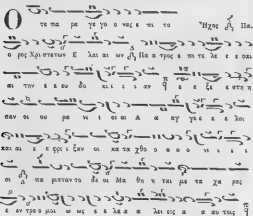 Ο τε πα ρα γε γο ο νης ε πι το Ἦχος Πα.
ο ρος Χρι στε των Ε λαι αι ων Πα α τρος ε πι τε λε ε σαι
αι την ε ε υ δο κι ι ι αν ε ξε ε στη η
σαν οι ου ρα νι ι οι οι Α α αγ γε ε ε λοι
και αι ε ε φρι ξαν οι κα τα χθο ο ο ο νι ι ι
οι πα ρισταν το δε οι Μα θη η ται με τα χα ρας
ε εν τρο ο μοι ω ως ε ε λα α α λει εις α α αυ τοις